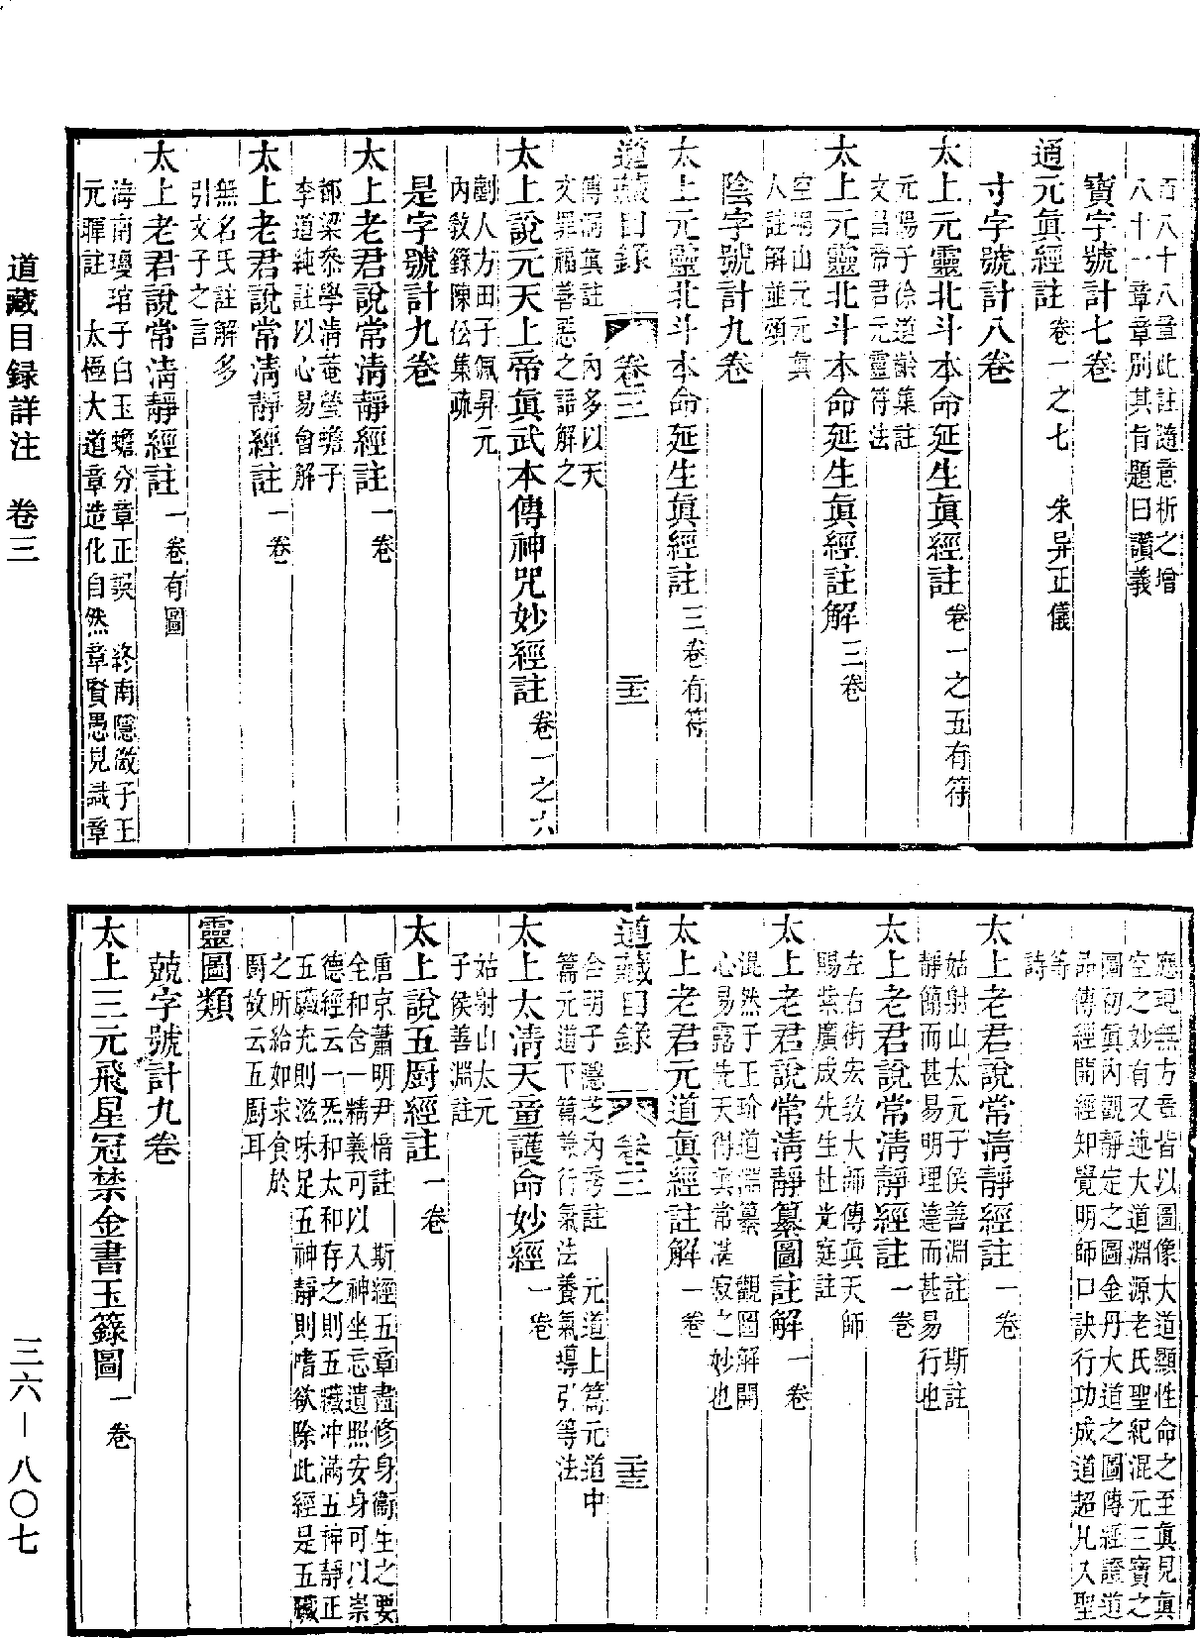 百八十八章此註隨意析之增
八十一章章別其肯題曰讚義
寶字號計七卷
通元眞經註 卷一之七 朱异正儀
寸字號計八卷
太上元靈北斗本命延生眞經註 卷一之五有符
元陽子徐道齡集註
文昌帝君元靈符法
太上元靈北斗本命延生眞經註解 三卷
空洞山元元眞
人註解並頌
陰字號計九卷
太上元靈北斗本命延生眞經註 三卷有符
道藏目錄 卷三 二十二
傅洞眞註 內多以天
文罪福善惡之語解之
太上說元天上帝眞武本傳神咒妙經註 卷一之六
劊人方田子佩昇元
內敎籙陳伀集疏
是字號計九卷
太上老君說常淸靜經註 一卷
都梁叅學淸菴瑩蟾子
李道純註以心易會解
太上老君說常淸靜經註 一卷
無名氏註解多
引文子之言
太上老君說常淸靜經註 一卷有圖
海南瓊琯子白玉蟾分章正誤 終南隱微子王
元暉註 太極大道章造化自然章賢愚見識章
應現無方章皆以圖像大道顯性命之至眞見眞
空之妙有又述大道淵源老氏聖紀混元三寶之
圖初眞內觀靜定之圖金丹大道之圖傳經證道
品傳經開經知覺明師口訣行功成道超凡入聖
等
詩
太上老君說常淸靜經註 一卷
姑射山太元子侯善淵註 斯註
靜簡而甚易明理達而甚易行也
太上老君說常淸靜經註 一卷
左右街宏敎大師傳眞天師
賜紫廣成先生杜光庭註
太上老君說常淸靜纂圖註解 一卷
混然子王玠道淵纂 觀圖解開
心易露先天得眞常湛寂之妙也
太上老君元道眞經註解 一卷
道藏目錄 卷三 二十三
含明子隱芝內秀註 元道上篇元道中
篇元道下篇等行氣法養氣導引等法
太上太淸天童護命妙經 一卷
姑射山太元
子侯善淵註
太上說五厨經註 一卷
唐京肅明尹愔註 斯經五章盡修身衞生之要
全和含一精義可以入神坐忘遺照安身可以崇
德經云一炁和太和存之則五臟冲滿五神靜正
五臟充則滋味足五神靜則嗜欲除此經是五臟
之所給如求食於
厨故云五厨耳
靈圖類
競字號計九卷
太上三元飛星冠禁金書玉籙圖 一卷
道藏目録詳注 卷三
三六—八〇七